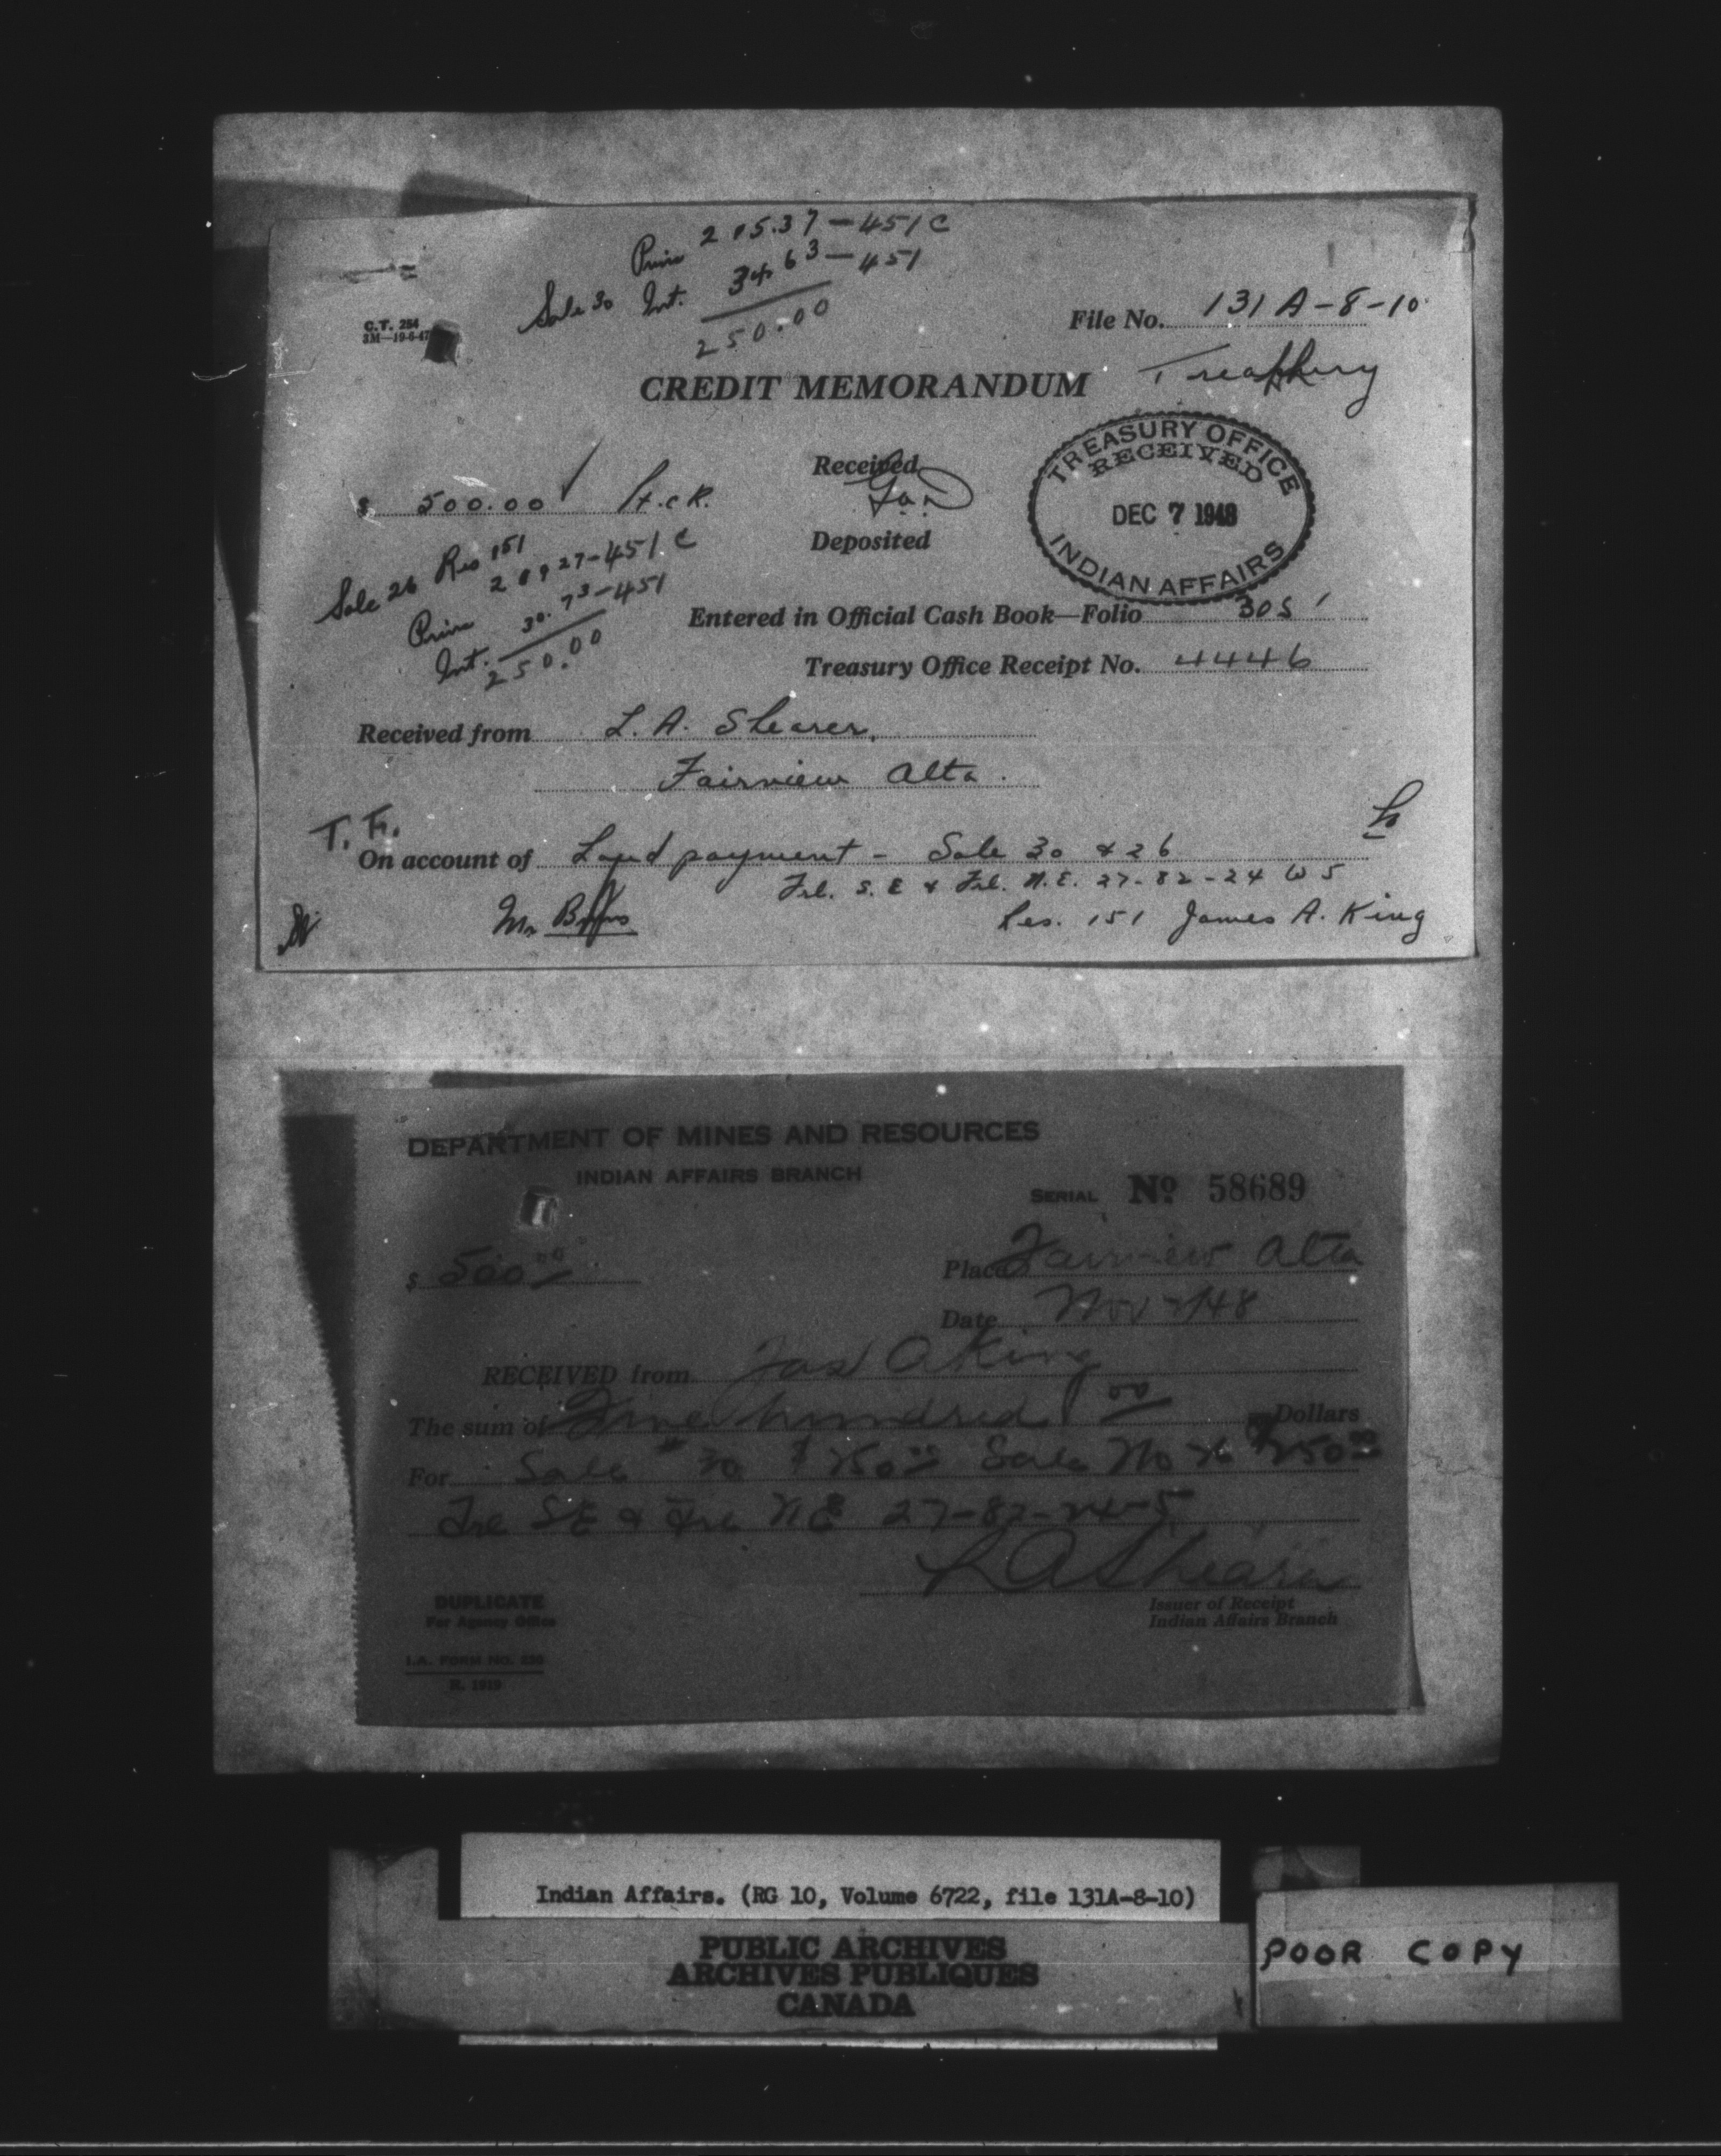 Prin 215.37 - 451 C
Sale 30 Int. 34.63 - 451
250.00
C.T. 284
3M—19-6-47
File No. 131 A-8-10
CREDIT MEMORANDUM
Treasury
$ 500.00
Received
Deposited
TREASURY OFFICE
RECEIVED
DEC 7 1948
INDIAN AFFAIRS
Sale 26 Res 151
Prin 219 27-451. C
Int. 30.73-451
250.00
Entered in Official Cash Book—Folio 305
Treasury Office Receipt No. 4446
Received from L. A. Shearer,
Fairview Alta.
T. F.
On account of Land payment - Sale 30 & 26
Frl. S. E & Frl. N.E. 27-82-24 W 5
Mr
Res. 151 James A. King
DEPARTMENT OF MINES AND RESOURCES
INDIAN AFFAIRS BRANCH
SERIAL No 58689
$ 500.00
Place Fairview Alta
Date Nov /48
RECEIVED from Jas A King
The sum of Five hundred 00 Dollars
For Sale # 30 $250.00 Sale No 26 $250.00
Fre SE & Fre NE 27-82-24-5
L A Shearer
Issuer of Receipt
Indian Affairs Branch
DUPLICATE
For Agency Office
I.A. FORM NO.
R. 1919
Indian Affairs. (RG 10, Volume 6722, file 131A-8-10)
PUBLIC ARCHIVES
ARCHIVES PUBLIQUES
CANADA
POOR COPY